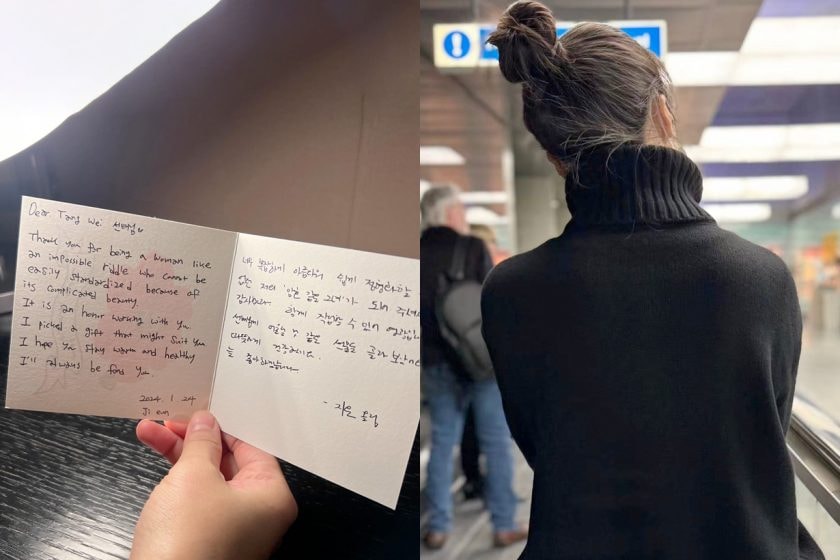 Dear Tang Wei 선배님
Thank you for being a woman like
an impossible riddle who cannot be
easily standardized because of
its complicated beauty.
It is an honor working with you.
I picked a gift that might suit you
I hope you stay warm and healthy
I'll always be fond you.
2024. 1. 24
Ji eun
아름다워 쉽게 정형화할
없는 저의 되어 주셔
감사해요. 함께 작업할 수 있어
선배님께 선물을 골라
따뜻하게
늘 좋아하겠습니다
- 지은 올림